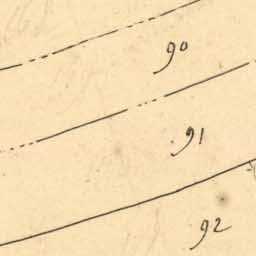 90
91
92